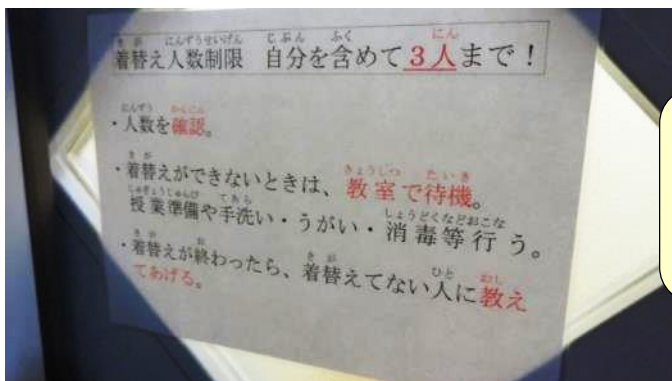 着替え人数制限 自分を含めて3人まで!
・人数を確認。
・着替えができないときは、教室で待機。
授業準備や手洗い・うがい・消毒等行う。
・着替えが終わったら、着替えてない人に教え
てあげる。